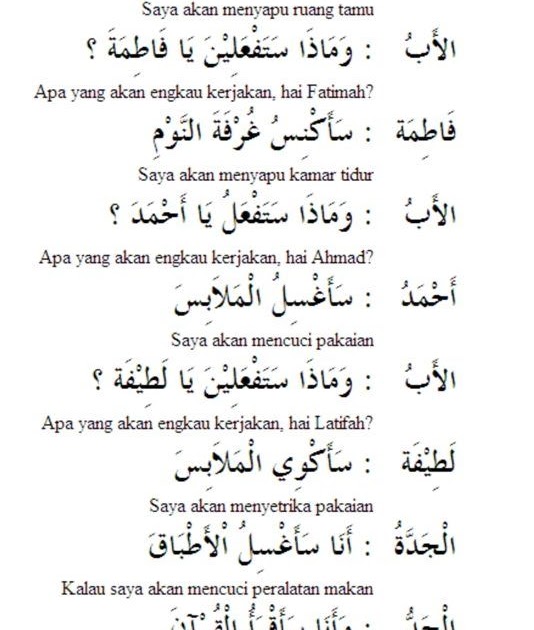 Saya akan menyapu ruang tamu
الأَبُ : وَمَاذَا سَتَفْعَلِيْنَ يَا فَاطِمَةَ ؟
Apa yang akan engkau kerjakan, hai Fatimah?
فَاطِمَة : سَأَكْنِسُ غُرْفَةَ النَّوْمِ
Saya akan menyapu kamar tidur
الأَبُ : وَمَاذَا سَتَفْعَلُ يَا أَحْمَدَ ؟
Apa yang akan engkau kerjakan, hai Ahmad?
أَحْمَدُ : سَأَغْسِلُ الْمَلاَبِسَ
Saya akan mencuci pakaian
الأَبُ : وَمَاذَا سَتَفْعَلِيْنَ يَا لَطِيْفَة ؟
Apa yang akan engkau kerjakan, hai Latifah?
لَطِيْفَة : سَأَكْوِي الْمَلاَبِسَ
Saya akan menyetrika pakaian
الْجَدَّةُ : أَنَا سَأَغْسِلُ اْلأَطْبَاقَ
Kalau saya akan mencuci peralatan makan
الْجَدُّ : وَأَنَا سَأَقْرَأُ الْقُرْآنَ